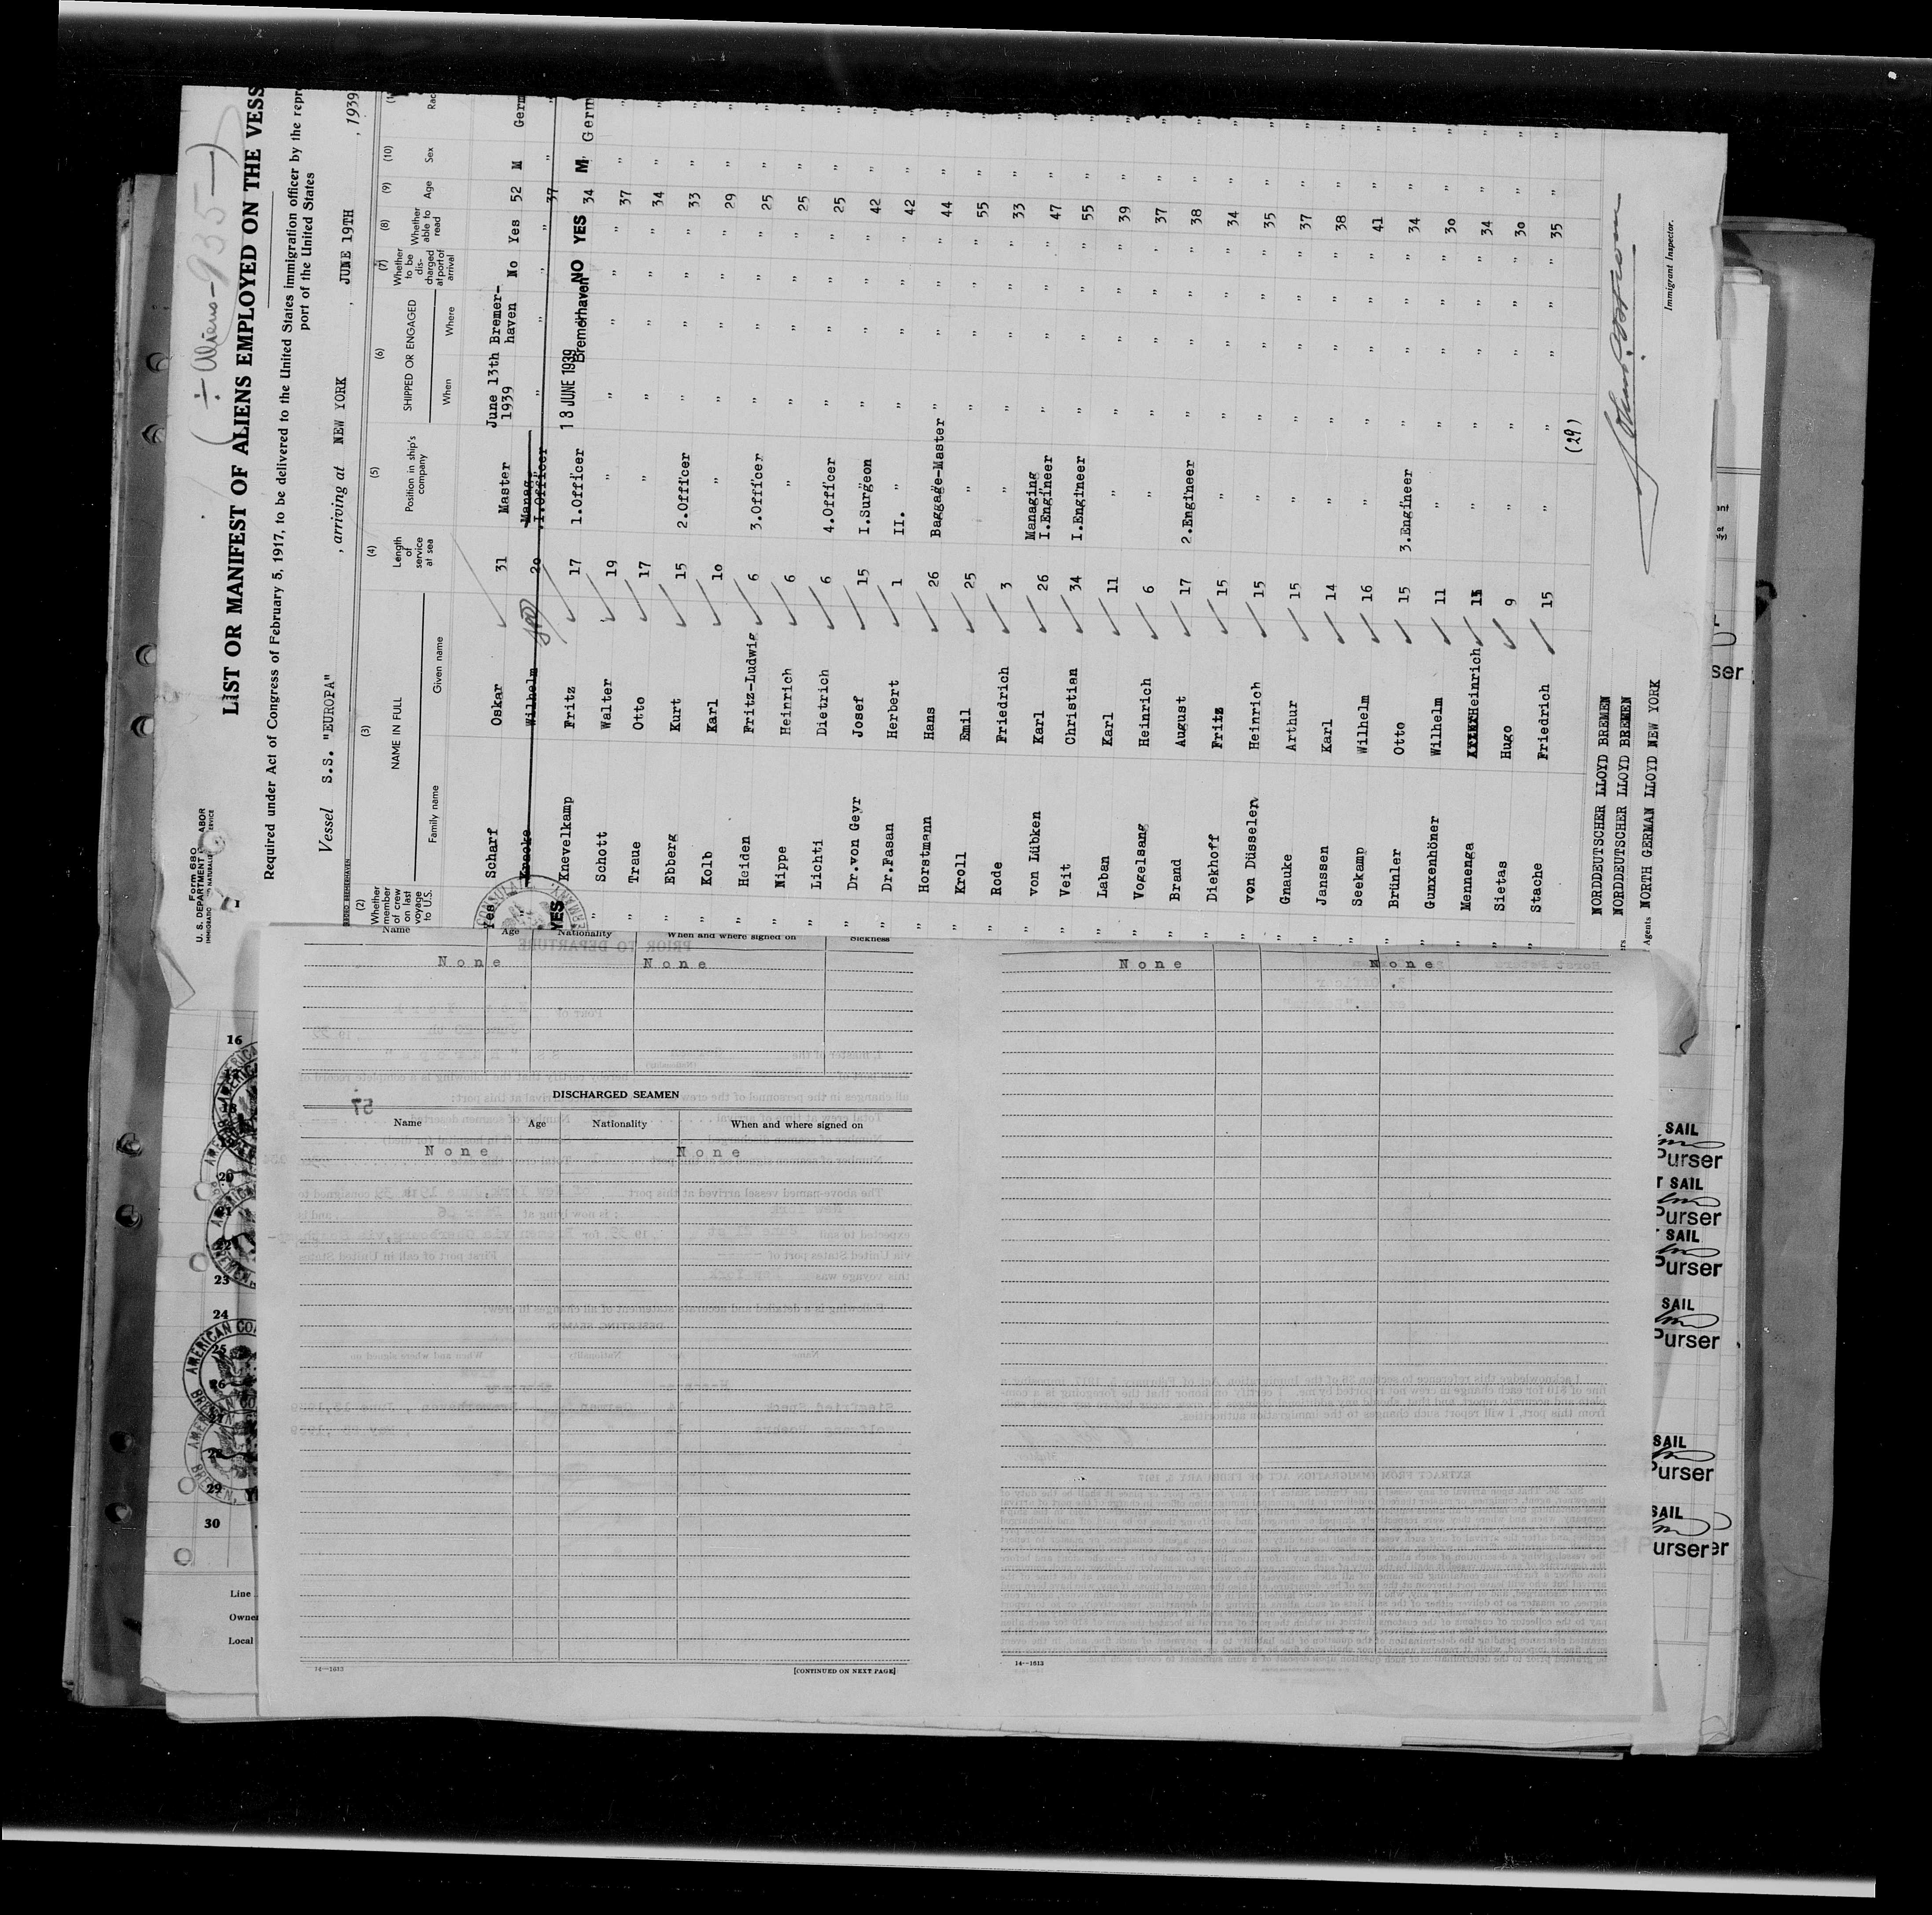 (÷ Aliens-935-)
Form 680
U. S. DEPARTMENT LABOR
LIST OR MANIFEST OF ALIENS EMPLOYED ON THE VESS
Required under Act of Congress of February 5, 1917, to be delivered to the United States immigration officer by the repre
port of the United States
Vessel S.S. "EUROPA" , arriving at NEW YORK , JUNE 19TH , 1939
(2) (3) (4) (5) (6) (7) (8) (9) (10)
Whether member of crew on last voyage to U.S. NAME IN FULL Family name Given name Length of service at sea Position in ship's company SHIPPED OR ENGAGED When Where Whether to be discharged at port of arrival Whether able to read Age Sex Rac
Yes Scharf Oskar 31 Master June 13th 1939 Bremer-haven No Yes 52 M Germ
" Wilhelm 20 Manag. I.Officer " " " " 37 "
YES Knevelkamp Fritz 17 1.Officer 18 JUNE 1939 Bremerhaven NO YES 34 M Germ
" Schott Walter 19 " " " " " 37 " "
" Traue Otto 17 " " " " " 34 " "
" Ebberg Kurt 15 2.Officer " " " " 33 " "
" Kolb Karl 10 " " " " " 29 " "
" Heiden Fritz-Ludwig 6 3.Officer " " " " 25 " "
" Nippe Heinrich 6 " " " " " 25 " "
" Lichti Dietrich 6 4.Officer " " " " 25 " "
" Dr.von Geyr Josef 15 I.Surgeon " " " " 42 " "
" Dr.Pasan Herbert 1 II. " " " " " 42 " "
" Horstmann Hans 26 Baggage-Master " " " " 44 " "
" Kroll Emil 25 " " " " " 55 " "
" Rode Friedrich 3 " " " " " 33 " "
" von Lübken Karl 26 Managing I.Engineer " " " " 47 " "
" Veit Christian 34 I.Engineer " " " " 55 " "
" Laban Karl 11 " " " " " 39 " "
" Vogelsang Heinrich 6 " " " " " 37 " "
" Brand August 17 2.Engineer " " " " 38 " "
" Diekhoff Fritz 15 " " " " " 34 " "
" von Düsselen Heinrich 15 " " " " " 35 " "
" Gnauke Arthur 15 " " " " " 37 " "
" Janssen Karl 14 " " " " " 38 " "
" Seekamp Wilhelm 16 " " " " " 41 " "
" Brünler Otto 15 3.Engineer " " " " 34 " "
" Gunxenhöner Wilhelm 11 " " " " " 30 " "
" Mennenga Heinrich " " " " " 34 " "
" Sietas Hugo 9 " " " " " 30 " "
" Stache Friedrich 15 " " " " " 35 " "
(29)
NORDDEUTSCHER LLOYD BREMEN
NORDDEUTSCHER LLOYD BREMEN
Agents NORTH GERMAN LLOYD NEW YORK
Immigrant Inspector.
Name Age Nationality When and where signed on Sickness
None None
DISCHARGED SEAMEN
Name Age Nationality When and where signed on
None None
14—1613 [CONTINUED ON NEXT PAGE]
None None
14—1613
16
20
23
24
25
26
27
28
29
30
AMERICAN
BREMEN,
Line
Owne
Local
ser
SAIL
Purser
T SAIL
Purser
SAIL
Purser
SAIL
Purser
SAIL
urser
SAIL
urser er